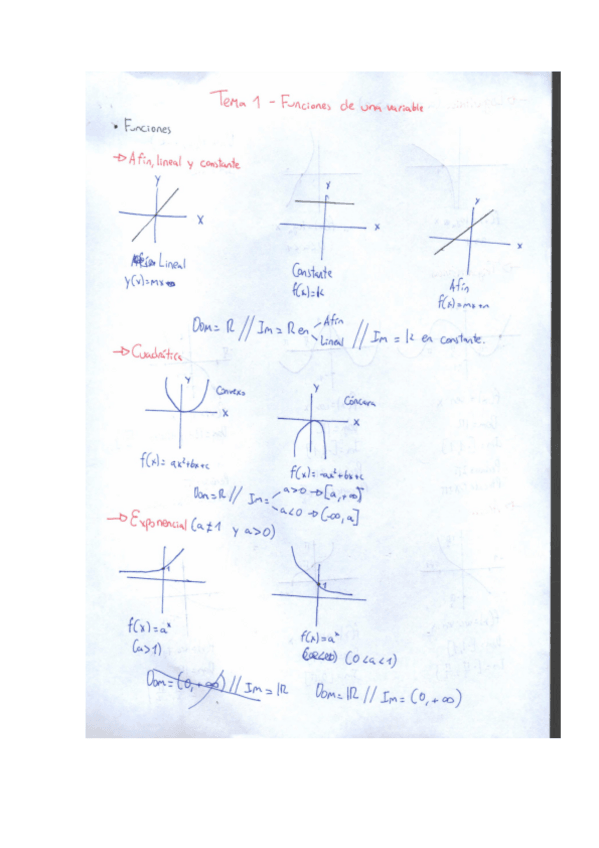 Tema 1 - Funciones de una variable
• Funciones
→ Afín, lineal y constante
y
x
Lineal
y(x)=mx
y
x
Constante
f(x)=k
y
x
Afín
f(x)=mx+n
Dom= R // Im= R en Afín Lineal // Im = k en constante.
→ Cuadrática
y
x
Convexa
f(x)= ax²+bx+c
y
x
Cóncava
f(x)= -ax²+bx+c
Dom=R // Im= a>0 → [a,+∞]
a<0 → (-∞,a]
→ Exponencial (a≠1 y a>0)
1
f(x)=a^x
(a>1)
1
f(x)=a^x
(0<a<1)
Dom=(0,+∞) // Im=IR
Dom=IR // Im=(0,+∞)